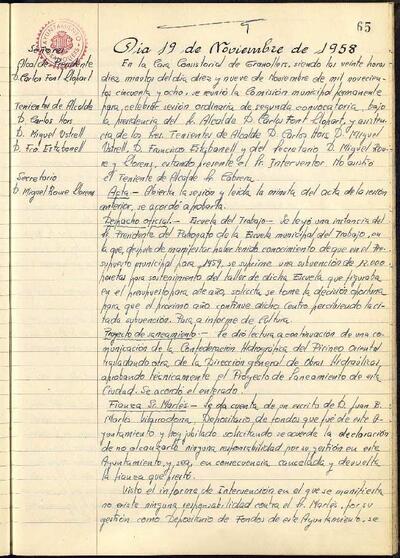 65
Día 19 de Noviembre de 1958
Señores
Alcalde-Presidente
D. Carlos Font Llopart
Tenientes de Alcalde
D. Carlos Hors
D. Miguel Ustrell
D. Fco. Estabanell
Secretario
D. Miguel Roure Llorens
En la Casa Consistorial de Granollers, siendo las veinte horas
diez minutos del día diez y nueve de Noviembre de mil novecien
cincuenta y ocho, se reunió la Comisión municipal permanente
para celebrar sesión ordinaria de segunda convocatoria, bajo
la presidencia del Sr. Alcalde D. Carlos Font Llopart, y asisten
cia de los Sres. Tenientes de Alcalde D. Carlos Hors, D. Miguel
Ustrell, D. Francisco Estabanell y del Secretario D. Miguel Rou-
re y Llorens, estando presente el Sr. Interventor. No asistió
el Teniente de Alcalde Sr. Cabrera.
Acta.- Abierta la sesión y leída la minuta del acta de la sesión
anterior, se acordó aprobarla.
Despacho oficial.- Escuela del Trabajo.- Se leyó una instancia del
Sr. Presidente del Patronato de la Escuela municipal del Trabajo, en
la que, después de manifestar haber tenido conocimiento de que en el Pre-
supuesto municipal para 1959, se suprime una subvención de 12.000
pesetas para sostenimiento del taller de dicha Escuela que figuraba
en el presupuesto para este año, solicita se tome la decisión oportuna
para que el próximo año continue dicho Centro percibiendo la ci-
tada subvención. Pase a informe de Cultura.
Proyecto de saneamiento.- Se dio lectura a continuación de una co-
municación de la Confederación Hidrográfica del Pirineo Oriental
trasladando otra de la Dirección general de Obras Hidráulicas,
aprobando técnicamente el Proyecto de Saneamiento de esta
Ciudad. Se acordó el enterado.
Fianza Sr. Martés.- Se da cuenta de un escrito de D. Juan B.
Martés Vilanodona, Depositario de fondos que fué de este A-
yuntamiento y hoy jubilado solicitando se acuerde la declaración
de no alcanzarle ninguna responsabilidad por su gestión en este
Ayuntamiento, y sea, en consecuencia cancelada y devuelta
la fianza que prestó.
Visto el informe de Intervención en el que se manifiesta
no existe ninguna responsabilidad contra el Sr. Martés, por su
gestión como Depositario de Fondos de este Ayuntamiento, se